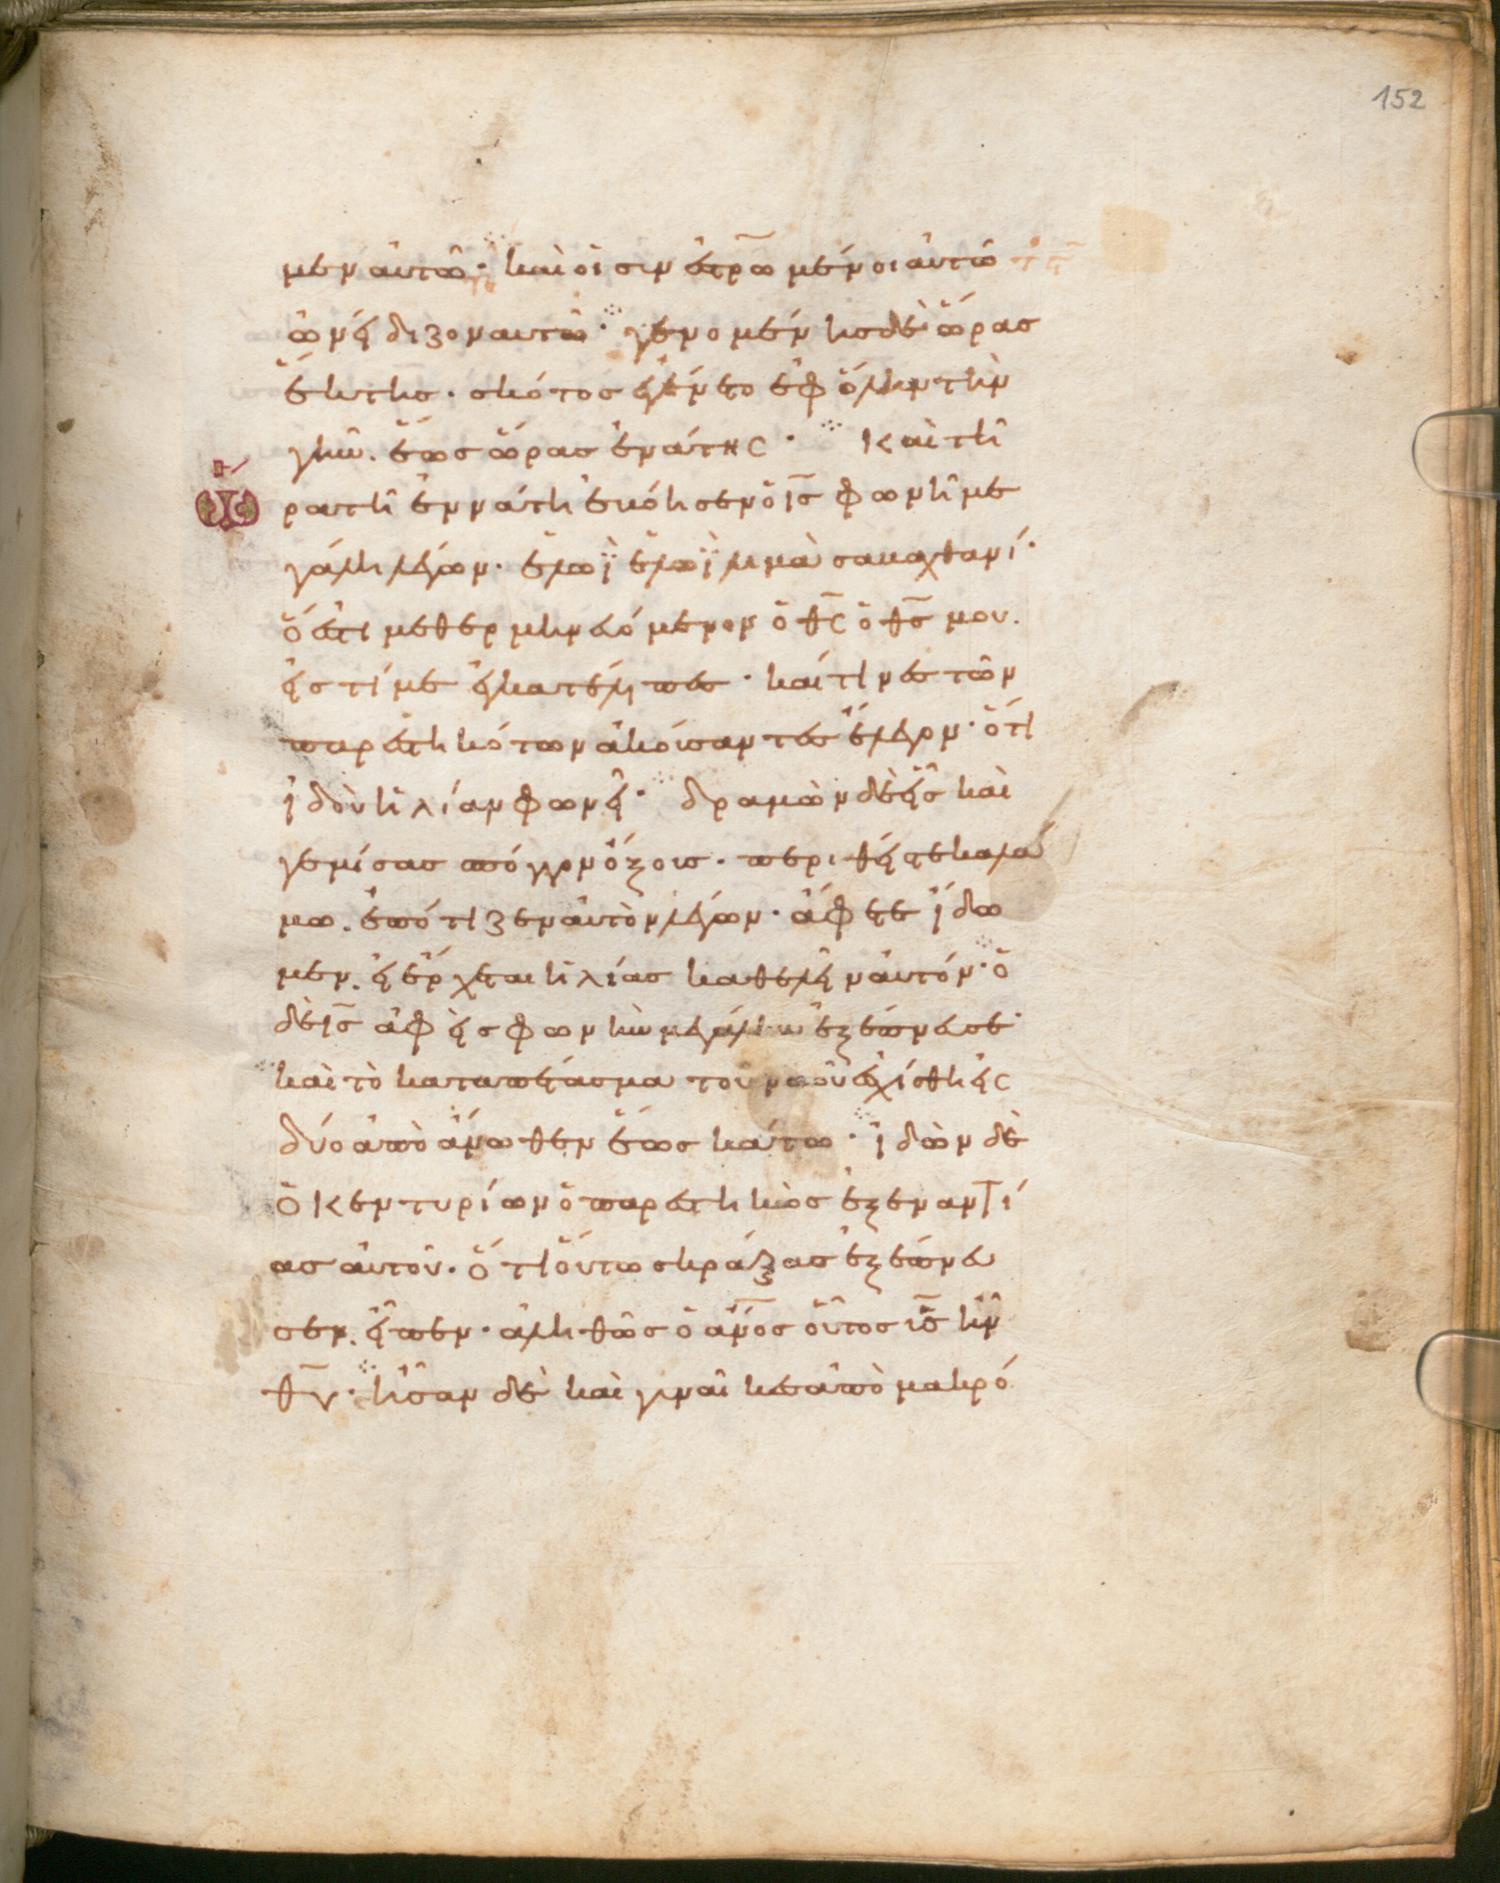 152
μεν αὐτῶ· καὶ οἱ συνεστρωμένοι αὐτῶ
ὠνείδιζον αυτῶ· γενομένησ δὲ ὥρασ
ἕκτησ· σκότοσ ἐγένετο ἐφ ὅλην τὴν
γῆν. ἕωσ ὥρασ ἐνάτης· Καὶ τῆ
ὥρα τῆ ἐννάτη ἐβόησεν ὁ ισ φωνῆ με
γάλη λέγων· ἐλωῒ ἐλωῒ λιμὰ σαβαχθανί·
ὅ ἐστι μεθερμηνευόμενον ὁ θς ὁ θσ μου.
εἰσ τί με ἐγκατέλιπεσ· καί τινεσ τῶν
παρεστηκότων ἀκούσαντεσ ἔλεγον· ὅτι
ἰδοὺ ἠλίαν φωνεῖ· δραμὼν δὲ εἷσ καὶ
γεμίσασ σπόγγον ὄξουσ· περιθείς τε καλά
μω. ἐπότιζεν αὐτὸν λέγων· ἄφετε ἴδω
μεν. εἰ ἔρχεται ἠλίασ καθελεῖν αὐτόν· ὁ
δὲ ισ ἀφεὶσ φωνὴν μεγάλην ἐξέπνευσε·
καὶ τὸ καταπέτασμα τοῦ ναοῦ ἐσχίσθη εἰς
δύο ἀπὸ ἄνωθεν ἕωσ κάτω· ἰδὼν δὲ
ὁ κεντυρίων ὁ παρεστηκὼσ ἐξεναντί
ασ αὐτοῦ· ὅτι οὕτω κράξασ ἐξέπνευ
σεν. εἶπεν· ἀληθῶσ ὁ ανοσ οὗτοσ υσ ἦν
θυ· ἦσαν δὲ καὶ γυναῖκεσ ἀπὸ μακρό